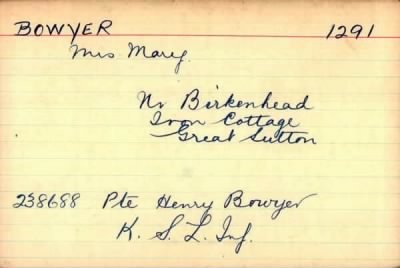 BOWYER 1291
Mrs Mary.
Nr Birkenhead
Iron Cottage
Great Sutton
238688 Pte Henry Bowyer
K. S. L. Inf.